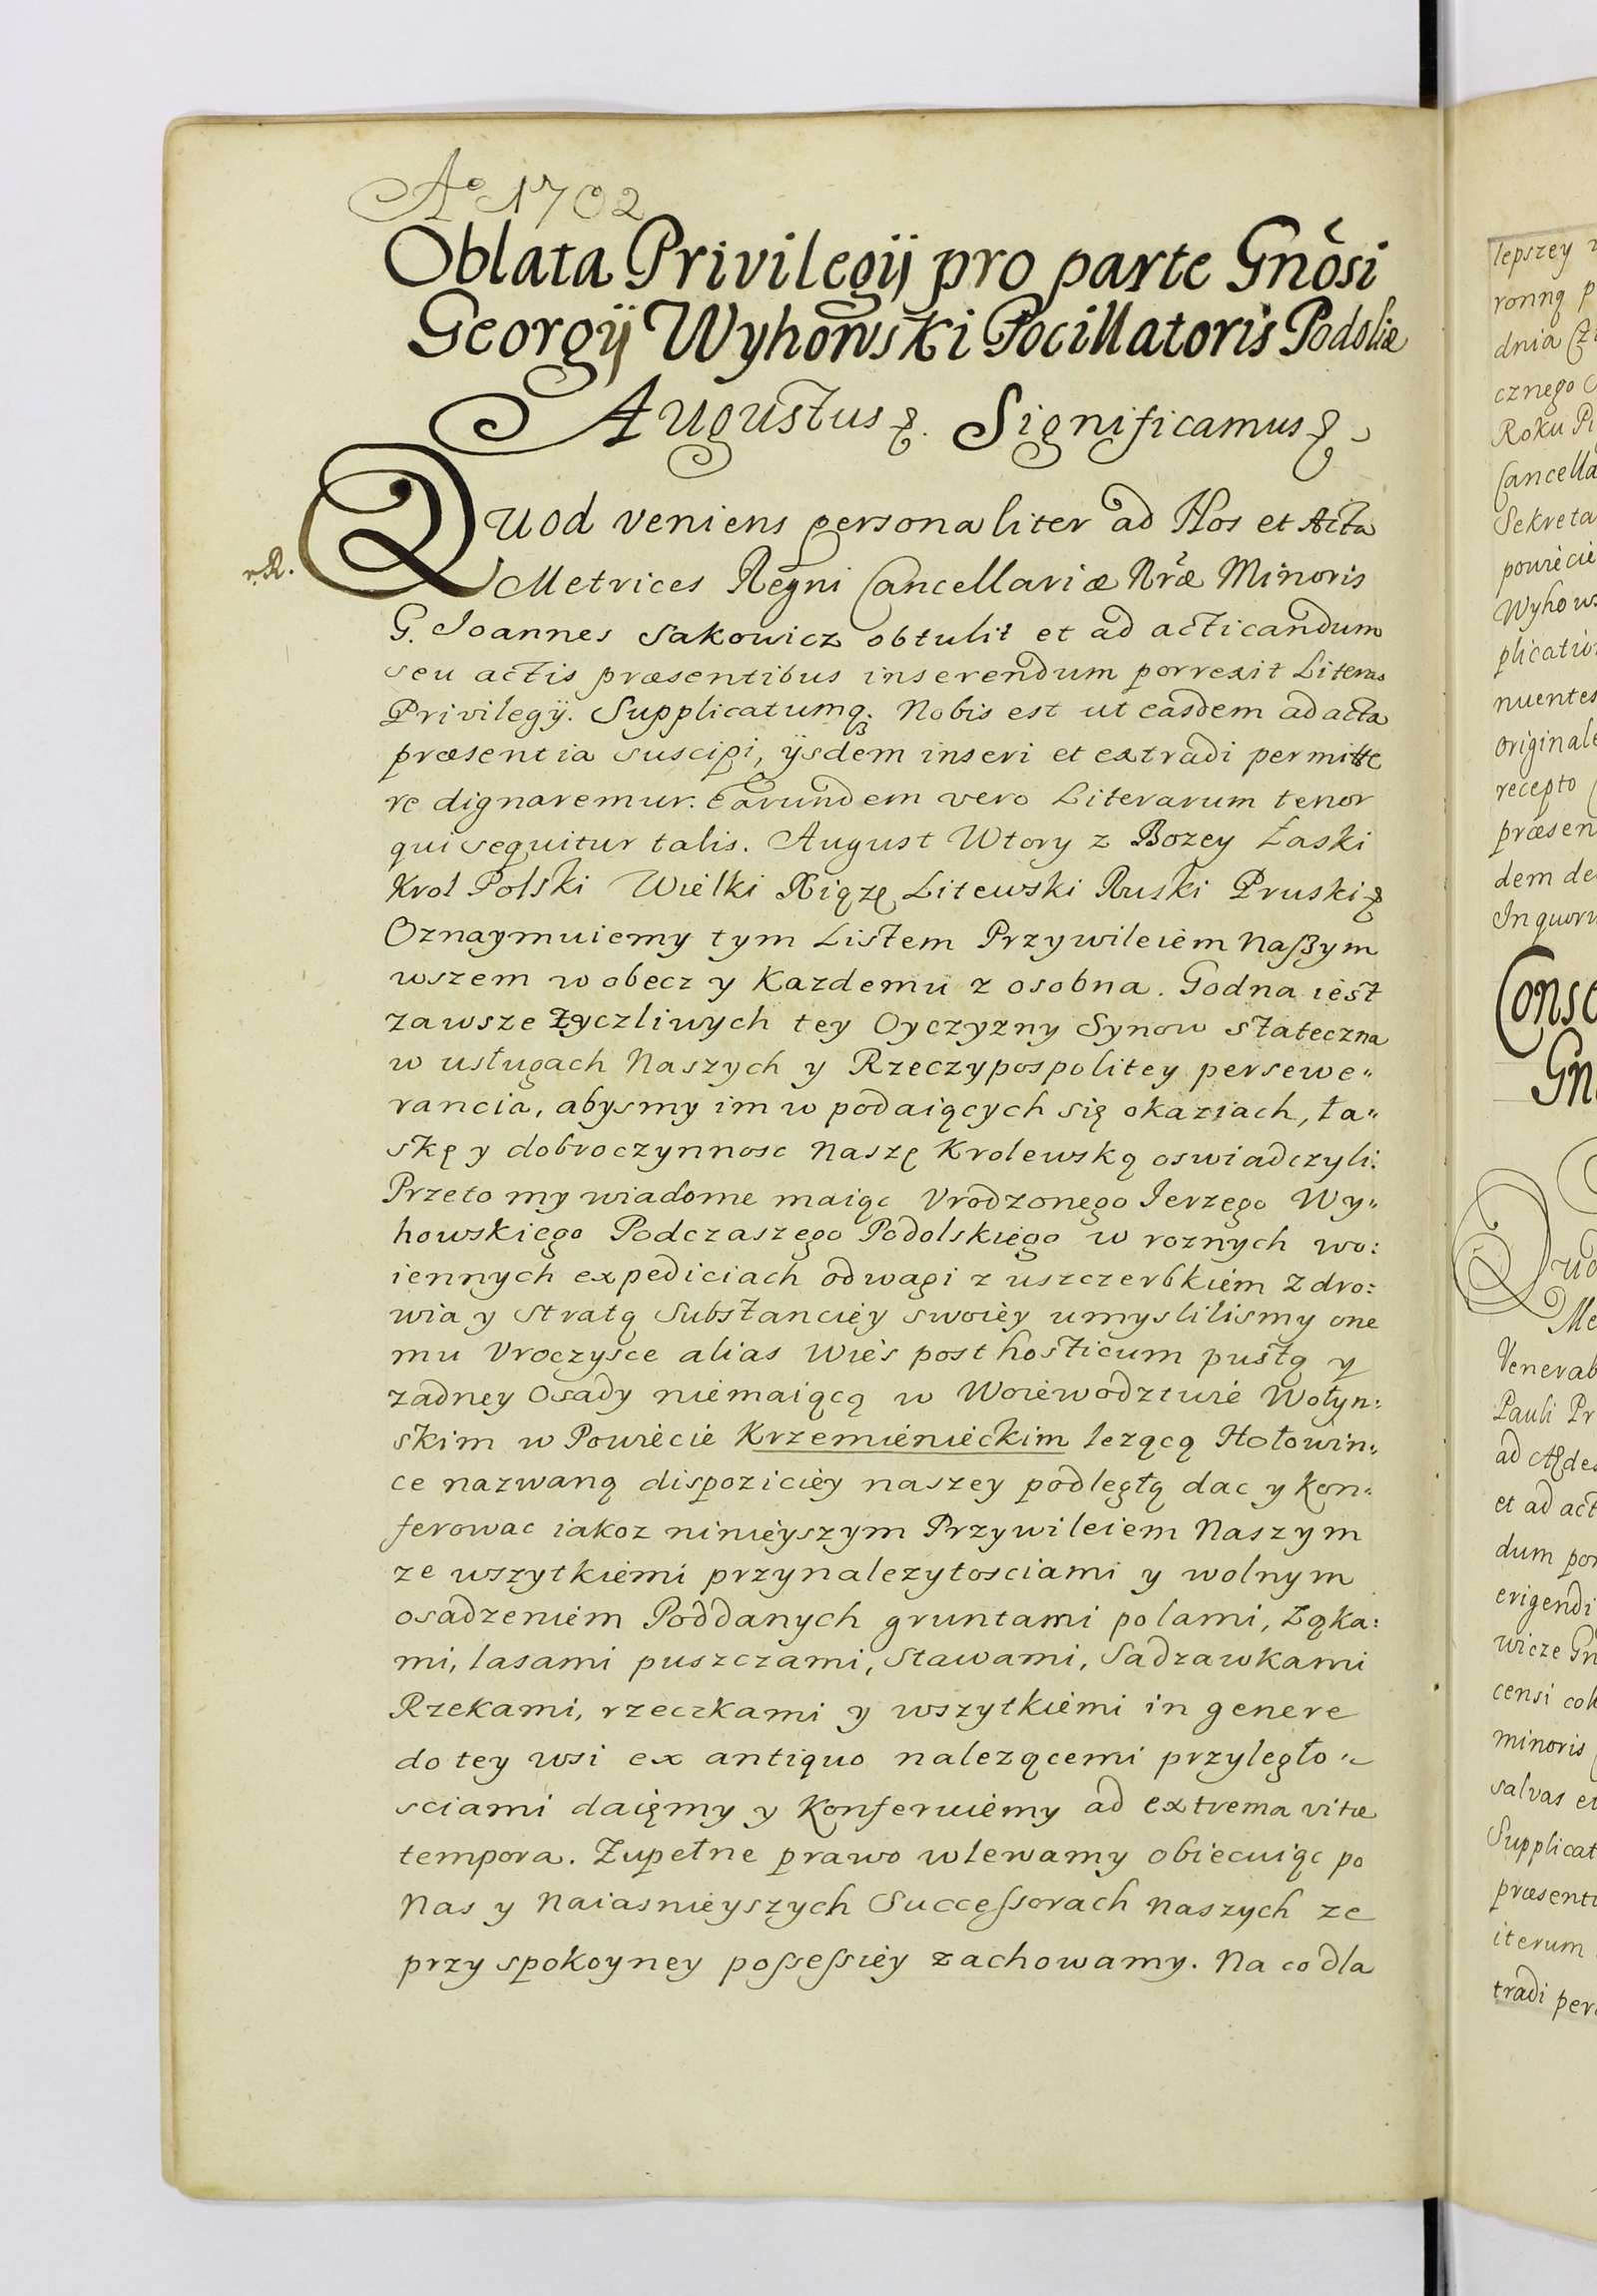 Aº 1702
Oblata Privilegij pro parte Gnosi
Georgij Wyhowski Pocillatoris Podoliæ
Augustus &. Significamus &
Quod veniens personaliter ad Nos et Acta
r. R.
Metrices Regni Cancellariæ Nræ Minoris
G. Joannes Sakowicz obtulit et ad acticandum
seu actis præsentibus inserendum porrexit Literas
Privilegij. Supplicatumq; Nobis est ut easdem ad acta
præsentia suscipi, ijsdem inseri et extradi permitte
re dignaremur. Earundem vero Literarum tenor
qui sequitur talis. August Wtory z Bozey Łaski
Krol Polski Wielki Xiązę Litewski Ruski Pruski &
Oznaymuiemy tym Listem Przywileiem Naszym
wszem wobecz y Kazdemu z osobna. Godna iest
zawsze Życzliwych tey Oyczyzny Synow stateczna
w usługach Naszych y Rzeczypospolitey persewe"
rancia, abysmy im w podaiących się okaziach, ła"
skę y dobroczynnosc Naszę Krolewską oswiadczyli.
Przeto my wiadome maiąc Vrodzonego Jerzego Wy"
howskiego Podczaszego Podolskiego w roznych wo:
iennych expediciach odwagi z uszczerbkiem zdro:
wia y stratą Substanciey swoiey umyslilismy one
mu Vroczysce alias Wies post hosticum pustą y
zadney Osady niemaiącą w Woiewodztwie Wołyn:
skim w Powiecie Krzemienieckim lezącą Hołowin:
ce nazwaną dispoziciey naszey podległą dac y Kon:
ferowac iakoz ninieyszym Przywileiem Naszym
ze wszytkiemi przynalezytosciami y wolnym
osadzeniem Poddanych gruntami polami, Ląka:
mi, lasami puszczami, Stawami, Sadzawkami
Rzekami, rzeczkami y wszytkiemi in genere
do tey wsi ex antiquo nalezącemi przyległo"
sciami daięmy y Konferuiemy ad extrema vitæ
tempora. Zupełne prawo wlewamy obiecuiąc po
Nas y Naiasnieyszych Successorach naszych ze
przy spokoyney possessiey zachowamy. Na co dla
lepszey
ronną p
dnia
cznego
Roku
Cancella
Sekreta
powiecie
Wyhows
plicatio
nuentes
originale
recepto
præsen
dem de
In quoru
Conse
Gn
Quo
Me
Venerab
Pauli Pr
ad Ædes
et ad act
dum por
erigendi
wicze Gn
censi col
minoris
salvas et
Supplicat
præsenti
iterum
tradi per